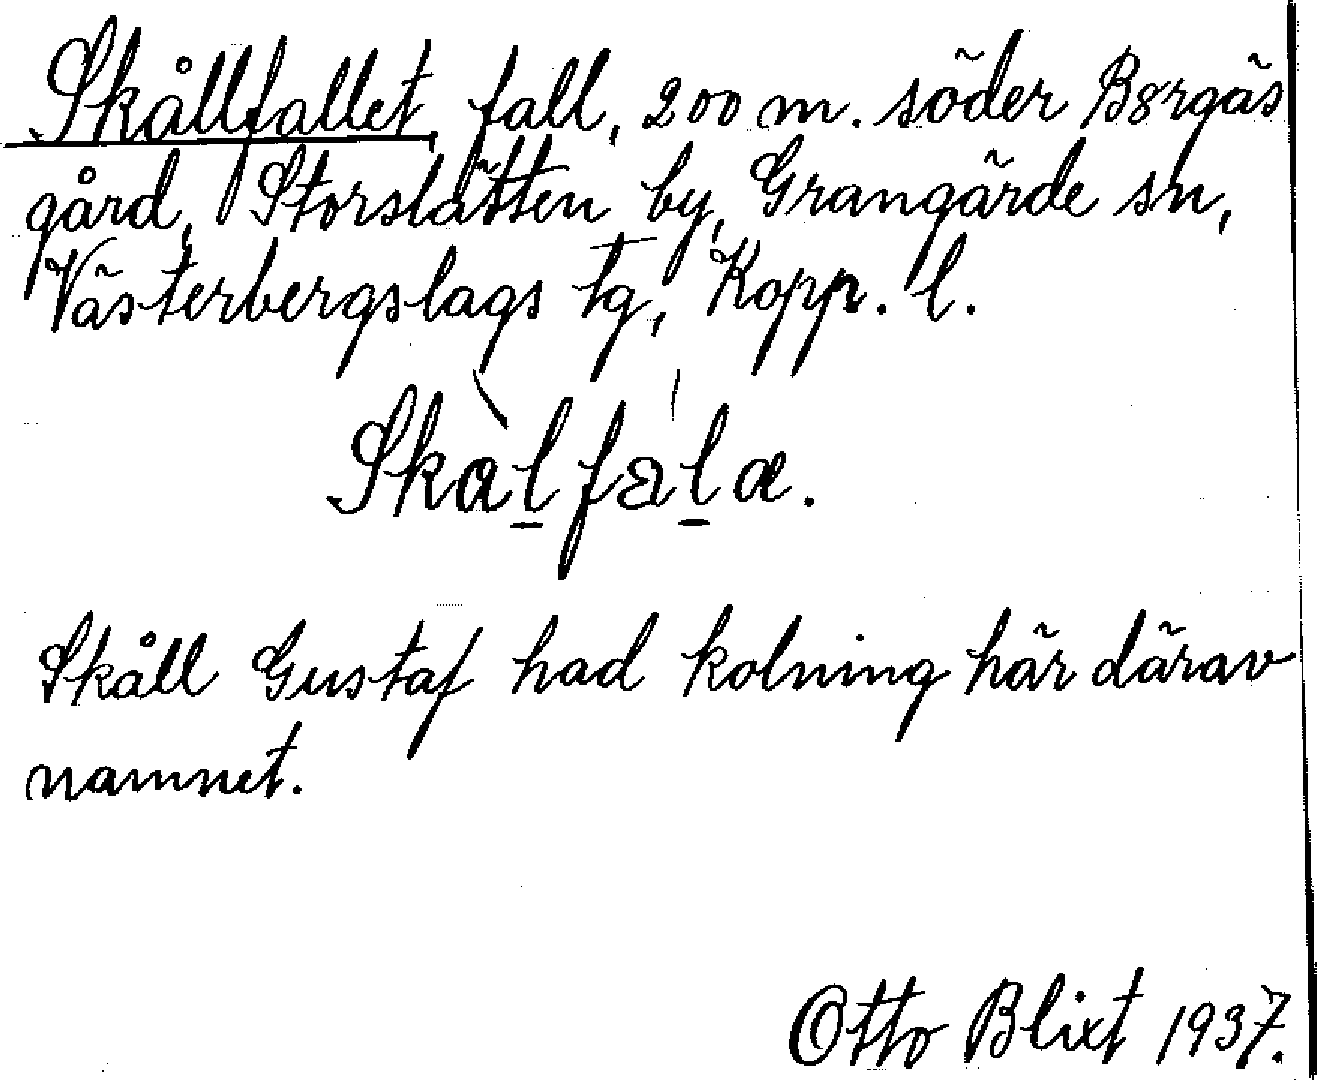 Skållfallet, fall, 200 m. söder Bergäs
gård, Storslätten by, Grangärde sn,
Västerbergslags tg, Kopp. l.
Skàlfala.
Skåll Gustaf had kolning här därav
namnet.
Otto Blixt 1937.